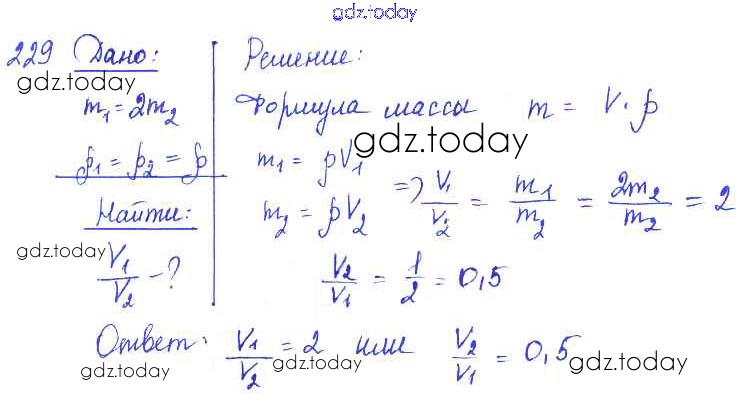 gdz.today
229 Дано:
gdz.today
m₁ = 2m₂
ρ₁ = ρ₂ = ρ
Найти:
gdz.today
V₁/V₂ - ?
Решение:
Формула массы m = V · ρ
gdz.today
m₁ = ρV₁
m₂ = ρV₂
=> V₁/V₂ = m₁/m₂ = 2m₂/m₂ = 2
V₂/V₁ = 1/2 = 0,5
gdz.today
Ответ: V₁/V₂ = 2 или V₂/V₁ = 0,5
gdz.today gdz.today gdz.today